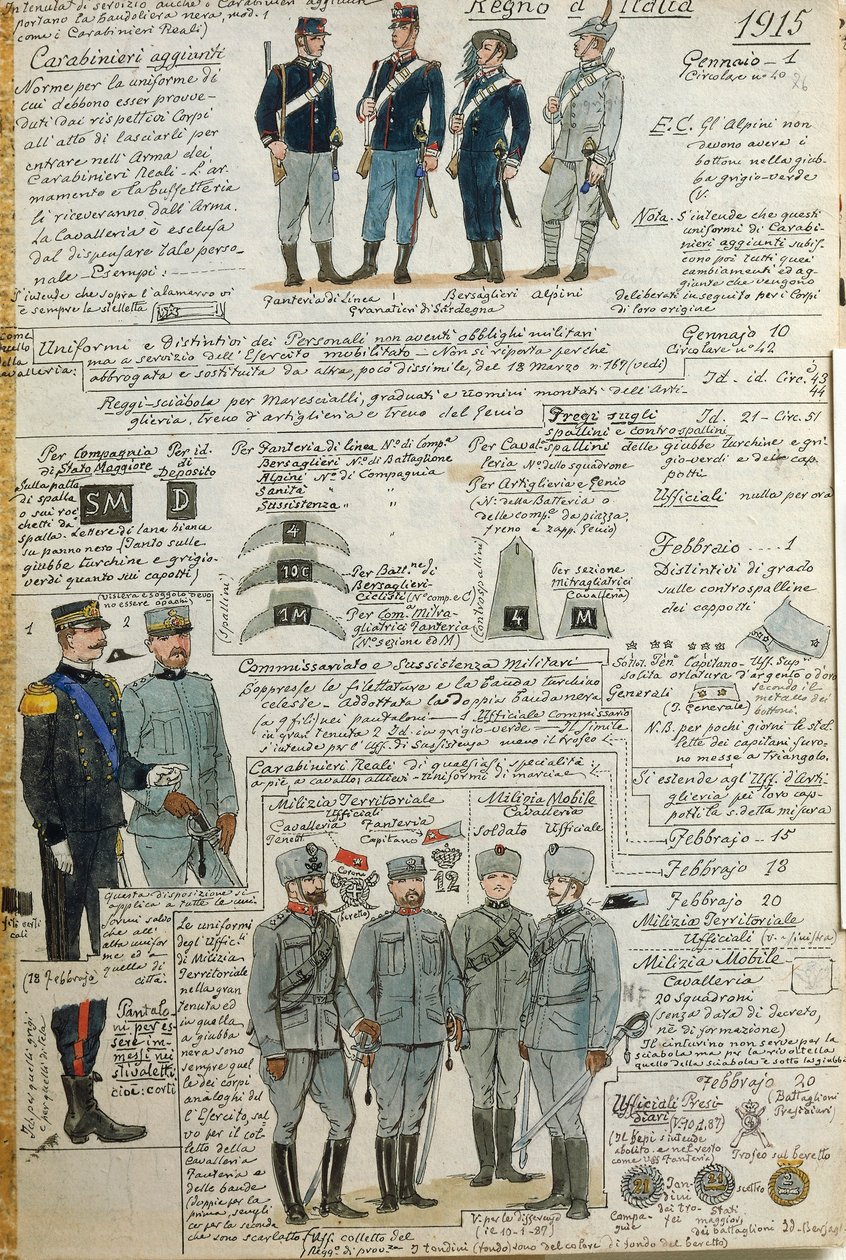 In tenuta di servizio anche i Carabinieri aggiunti
portano la bandoliera nera mod. 1
come i Carabinieri Reali)
Regno d'Italia
1915
Carabinieri aggiunti
Norme per la uniforme di
cui debbono esser provve-
duti dai rispettivi Corpi
all'atto di lasciarli per
entrare nell'Arma dei
Carabinieri Reali - L'ar-
mamento e la buffetteria
li riceveranno dall'Arma.
La Cavalleria è esclusa
dal dispensare tale perso-
nale - Esempi:
S'intende che sopra l'alamarro vi
è sempre la stelletta
Gennaio - 1
Circolare n° 40
26
E.C. Gli Alpini non
devono avere i
bottoni nella giub-
ba grigio-verde
(V.
Nota. S'intende che questi
uniformi di Carabi-
nieri aggiunti subis-
cono poi tutti quei
cambiamenti ed ag-
giunte che vengono
deliberati in seguito per i Corpi
di loro origine
Fanteria di Linea
Granatieri di Sardegna
Bersaglieri
Alpini
come
quello
della
cavalleria:
Uniformi e distintivi dei Personali non aventi obblighi militari
ma a servizio dell'Esercito mobilitato - Non si riporta perchè
abbrogata e sostituita da altra, poco dissimile, del 18 Marzo n. 167 (vedi)
Gennajo 10
Circolare n° 42
Reggi-sciabola per Marescialli, graduati e uomini montati dell'Arti-
glieria, Treno d'artiglieria e treno del Genio
Id - id. Circ. 43 e
44
Fregi sugli
spallini e controspallini
Id. 21 - Circ. 51
delle giubbe turchine e gri-
gio-verdi e dei cap-
potti
Ufficiali nulla per ora
Per Compagnia
di Stato Maggiore
Per id.
di
Deposito
Sulla patta
di spalla
o sui roc-
chetti da
spalla. Lettere di lana bianca
su panno nero (Tanto sulle
giubbe turchine e grigio-
verdi quanto sui capotti)
SM
D
Per Fanteria di linea N° di Comp.a
Bersaglieri N° di Battaglione
Alpini N° di Compagnia
Sanità "
Sussistenza "
Per Caval-
leria N° dello squadrone
Per Artiglieria e Genio
(N° della Batteria o
delle comp.e da piazza,
treno e zapp. Genio)
4
10C
1M
(Spallini)
Per Batt.ne di
Bersaglieri-
Ciclisti (N° comp. e C)
Per Com.a Mitra-
gliatrici Fanteria
(N° sezione ed M)
(Controspallini)
4
Per sezione
Mitragliatrici
Cavalleria
M
Febbraio - 1
Distintivi di grado
sulle controspalline
dei cappotti
Sottot. Ten. Capitano - Uff. Sup.
solita orlatura d'argento o d'oro
secondo il
metallo dei
bottoni.
Generali
(T. Generale)
N.B. per pochi giorni le stel-
lette dei capitani furo-
no messe a Triangolo.
Si estende agl'Uff. d'Arti-
glieria pei loro cap-
potti la s.detta misura
1
2
visiera e soggolo devo-
no essere opachi
Commissariato e Sussistenza Militari
Soppresse le filettature e la banda turchino
celeste - Addottata la doppia banda nera
(a 9 fili) nei pantaloni - 1 Ufficiale Commissario
in gran tenuta 2 Id. in grigio-verde - Il simile
s'intende per l'Uff. di Sussistenza meno il trofeo
Carabinieri Reali di qualsiasi specialità
a piè, a cavallo, allievi - Uniformi di marcia
Febbrajo - 15
Febbrajo 18
Milizia Territoriale
Ufficiali
Cavalleria
Tenente
Fanteria
Capitano
Corona
(beretto)
12
Milizia Mobile
Cavalleria
soldato Ufficiale
Febbrajo 20
Milizia Territoriale
Ufficiali (v. a sinistra)
Milizia Mobile
Cavalleria
20 Squadroni
(senza data di decreto,
nè di formazione)
Il cinturino non serve per la
sciabola ma per la rivoltella
quello della sciabola è sotto la giubba
Questa disposizione si
applica a tutte le uni-
formi salvo
che all'
alta unifor-
me ed a
quella di
città.
fili verti
cali
(18 Febbrajo
Pantalo-
ni per es-
sere im-
messi nei
stivaletti
cioè: corti
Le uniformi
degl'Uffic.li
di Milizia
Territoriale
nella gran
tenuta ed
in quella
a giubba
nera sono
sempre quel-
le dei corpi
analoghi del-
l'Esercito, sal-
vo per il col-
letto della
Cavalleria
Fanteria e
delle bande
(doppia per la
prima, sempli-
ce per la seconda
che sono scarlatto
V. per le differenze
(il 10-1-87)
Febbrajo 20
(Battaglioni
Presidiari)
Ufficiali Presi-
diari (V. 10.1.87)
(Il kepi s'intende
abolito e nel resto
come Uff. Fanteria)
Trofeo sul beretto
21
21
2
Compa-
gnie
Ton-
dini
dai tro-
fei
Stati
maggiori
dei battaglioni
Id - Bersagl.
Uff. colletto del
I tondini (fondo) sono del colore di fondo del beretto)